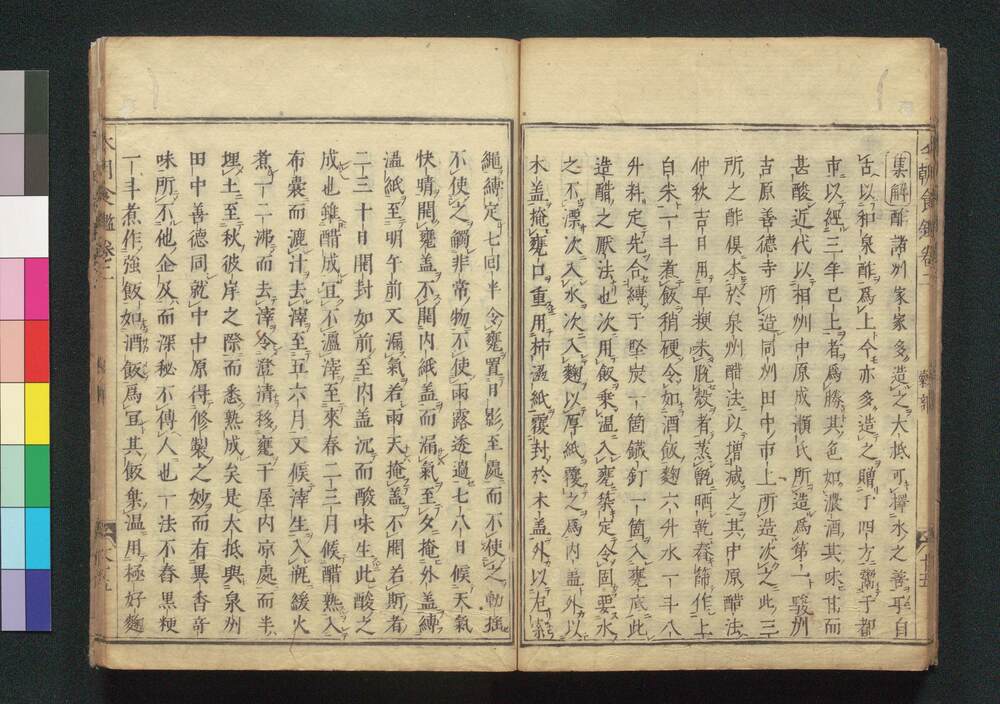 集解酢諸州家家多造之大抵可擇水之善耳自
古以和泉酢爲上今亦多造之贈于四方鬻于都
市以經三年已上者爲勝其色如濃酒其味甘而
甚酸近代以相州中原成瀬氏所造爲第一駿州
吉原善德寺所造同州田中市上所造次之此三
所之酢俱本於泉州醋法以增減之其中原醋法
仲秋吉日用早粳米脫殼者蒸甑晒乾舂篩作上
白米一斗煮飯稍硬令如酒飯麴六升水一斗八
升料定先合縛于堅炭一箇鐵釘一箇入甕底此
造醋之厭法也次用飯乗温入甕築定令固要水
之不漂次入水次入麴以厚紙覆之爲内蓋外以
木盖掩甕口重用柿澁紙覆封於木盖外以
繩縛定七回半令甕置日影至處而不使之動搖
不使之觸非常物不使雨露透過七八日候天氣
快晴開甕盖不開内紙盖而漏氣至夕掩外盖縛
温紙至明午前又漏氣若雨天掩盖不開若斯者
二三十日開封如前至内盖沉而酸味生此酸之
成也雖醋成宜不漉滓至來春二三月候醋熟入
布囊而漉汁去滓至五六月又候滓生入甁緩火
煮一二沸而去滓令澄清移甕于屋内凉處而半
埋土至秋彼岸之際而悉熟成矣是大抵與泉州
田中善德同就中中原得修製之妙而有異香竒
味所不他企及而深秘不傳人也一法不舂黒粳
一斗煮作強飯如酒飯爲宜其飯乗温用極好麴